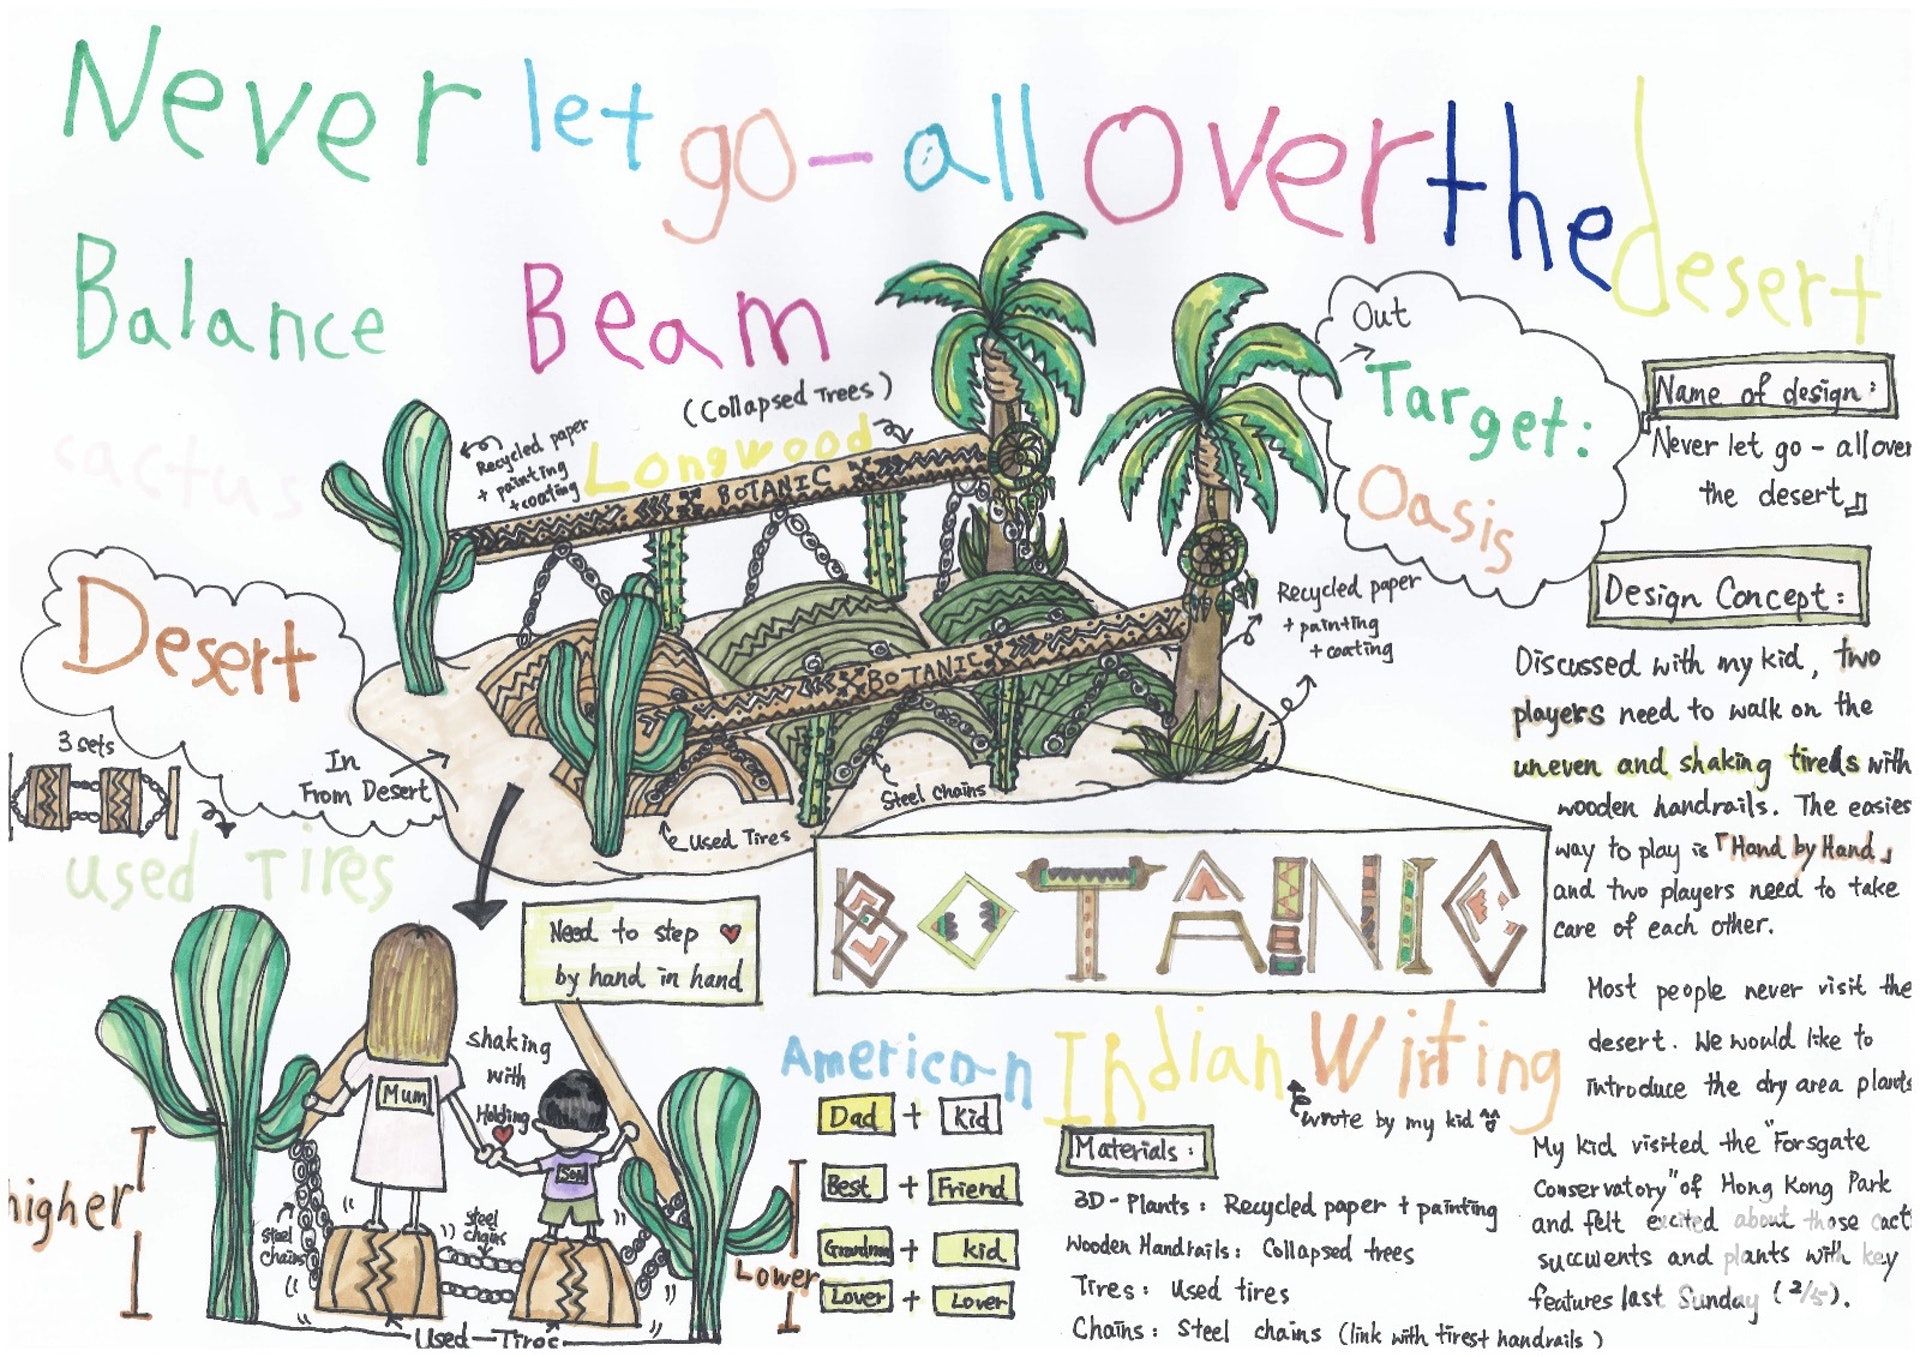 Never let go - all over the desert
Balance Beam
(Collapsed Trees)
Longwood
cactus
Recycled paper
+ painting
+ coating
BOTANIC
BOTANIC
Out
Target:
Oasis
Recycled paper
+ painting
+ coating
Desert
3 sets
In
From Desert
used Tires
Used Tires
Steel chains
Need to step ♥
by hand in hand
BOTANIC
American Indian Wirting
wrote by my kid ^^
shaking
with
Holding
Mum
Son
higher
Lower
steel
chains
steel
chains
Used Tires
Dad + kid
Best + Friend
Grandma + kid
Lover + Lover
Materials:
3D-Plants: Recycled paper + painting
Wooden Handrails: Collapsed trees
Tires: Used tires
Chains: Steel chains (link with tirest handrails)
Name of design:
「Never let go - all over
the desert」
Design Concept:
Discussed with my kid, two
players need to walk on the
uneven and shaking tireds with
wooden handrails. The easies
way to play is 「Hand by Hand」
and two players need to take
care of each other.
Most people never visit the
desert. We would like to
introduce the dry area plants
My kid visited the "Forsgate
Conservatory" of Hong Kong Park
and felt excited about those cacti
succulents and plants with key
features last Sunday (2/5).